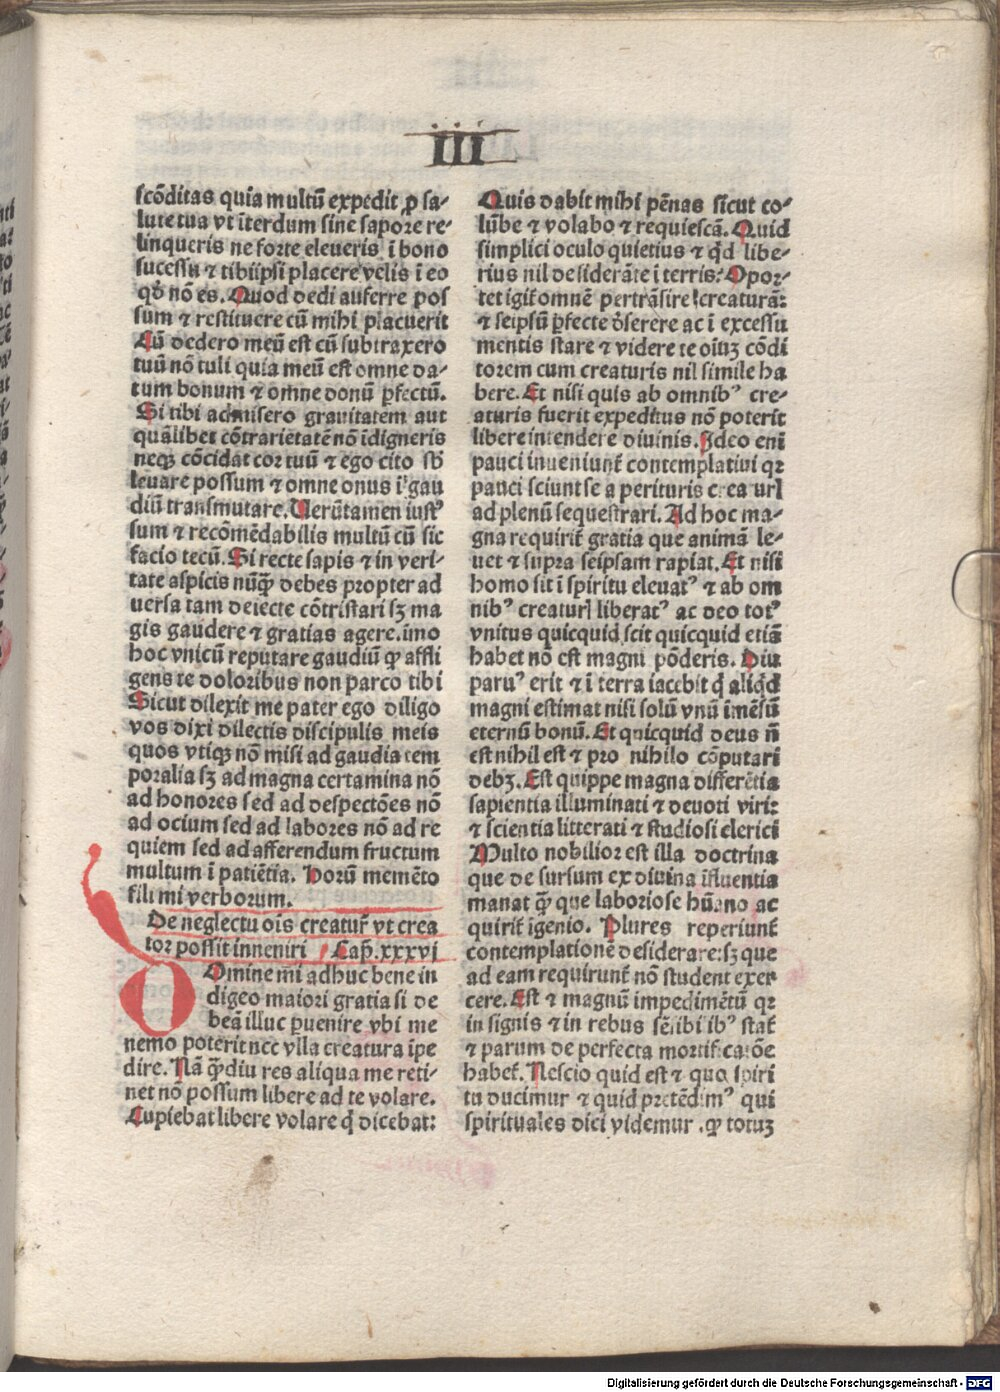 III
scōditas quia multū expedit ꝓ sa-
lute tua vt īterdum sine sapore re-
linqueris ne forte eleueris ī bono
successu ⁊ tibiipsi placere velis ī eo
qḋ nō es. Quod dedi auferre pos
sum ⁊ restituere cū mihi placuerit
Cū dedero meū est cū subtraxero
tuū nō tuli quia meū est omne da-
tum bonum ⁊ omne donū ꝑfectū.
Si tibi admisero grauitatem aut
quālibet cōtrarietatē nō īdigneris
neqꝫ cōcidat cor tuū ⁊ ego cito sb̄
leuare possum ⁊ omne onus ī gau
diū transmutare. Uerūtamen iustꝰ
sum ⁊ recōmēdabilis multū cū sic
facio tecū. Si recte sapis ⁊ in veri-
tate aspicis nūqꝫ debes propter ad
uersa tam deiecte cōtristari sꝫ ma
gis gaudere ⁊ gratias agere. imo
hoc vnicū reputare gaudiū ꝙ affli
gens te doloribus non parco tibi
Sicut dilexit me pater ego diligo
vos dixi dilectis discipulis meis
quos vtiqꝫ nō misi ad gaudia tem
poralia sꝫ ad magna certamina nō
ad honores sed ad despectōes nō
ad ocium sed ad labores nō ad re
quiem sed ad afferendum fructum
multum ī patiētia. Horū memēto
fili mi verborum.
De neglectu oīs creatuꝝ vt crea
tor possit inneniri Cap̄. xxxvi
DOmine mī adhuc bene in
digeo maiori gratia si de
beā illuc ꝑuenire vbi me
nemo poterit nec vlla creatura īpe
dire. Nā qꝫdiu res aliqua me reti-
net nō possum libere ad te volare.
Cupiebat libere volare q̇ dicebat:
Quis dabit mihi pēnas sicut co-
lūbe ⁊ volabo ⁊ requiescā. Quid
simplici oculo quietius ⁊ qd̄ libe-
rius nil desiderāte ī terris: Opor-
tet igit̄ omnē pertrāsire creaturā:
⁊ seipsū ꝑfecte deserere ac ī excessu
mentis stare ⁊ videre te oīuꝫ cōdi
torem cum creaturis nil simile ha
bere. Et nisi quis ab omnibꝰ cre-
aturis fuerit expeditus nō poterit
libere intendere diuinis. Ideo eni
pauci inueniunt̄ contemplatiui qꝛ
pauci sciunt se a perituris creaturꝭ
ad plenū sequestrari. Ad hoc ma-
gna requirit̄ gratia que animā le-
uet ⁊ supra seipsam rapiat. Et nisi
homo sit ī spiritu eleuatꝰ ⁊ ab om
nibꝰ creaturꝭ liberatꝰ ac deo totꝰ
vnitus quicquid scit quicquid etiā
habet nō est magni pōderis. Diu
paruꝰ erit ⁊ ī terra iacebit q̇ aliqd̄
magni estimat nisi solū vnū īmēsū
eternū bonū. Et quicquid deus n̄
est nihil est ⁊ pro nihilo cōputari
debꝫ. Est quippe magna differētia
sapientia illuminati ⁊ deuoti viri:
⁊ scientia litterati ⁊ studiosi clerici
Multo nobilior est illa doctrina
que de sursum ex diuina īfluentia
manat qꝫ que laboriose hūano ac
quirit̄ īgenio. Plures reperiunt̄
contemplationē desiderare: sꝫ que
ad eam requirunt̄ nō student exer
cere. Est ⁊ magnū impedimētū qꝛ
in signis ⁊ in rebus sēsibibꝰ stat̄
⁊ parum de perfecta mortificatōe
habet̄. Nescio quid est ⁊ quo spiri
tu ducimur ⁊ quid p̄tēdimꝰ qui
spirituales dici videmur. ꝙ totuꝫ
Digitalisierung gefördert durch die Deutsche Forschungsgemeinschaft - DFG